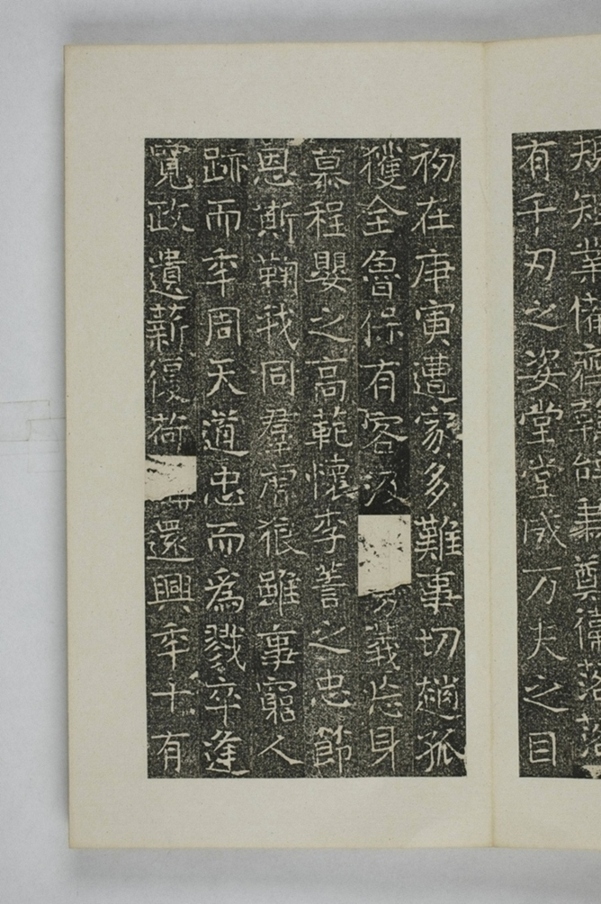 規矩業備齊韓雄兼奠衛落落
有千刃之姿堂堂成万夫之目
初在庚寅遭家多難事切趙孤
獲全魯保有客汲義忘身
慕程嬰之高範懷李善之忠節
恩斯鞠我同羣虎狼雖事窮人
跡而年周天道忠而爲戮卒逢
寬政遺薪復荷還興年十有